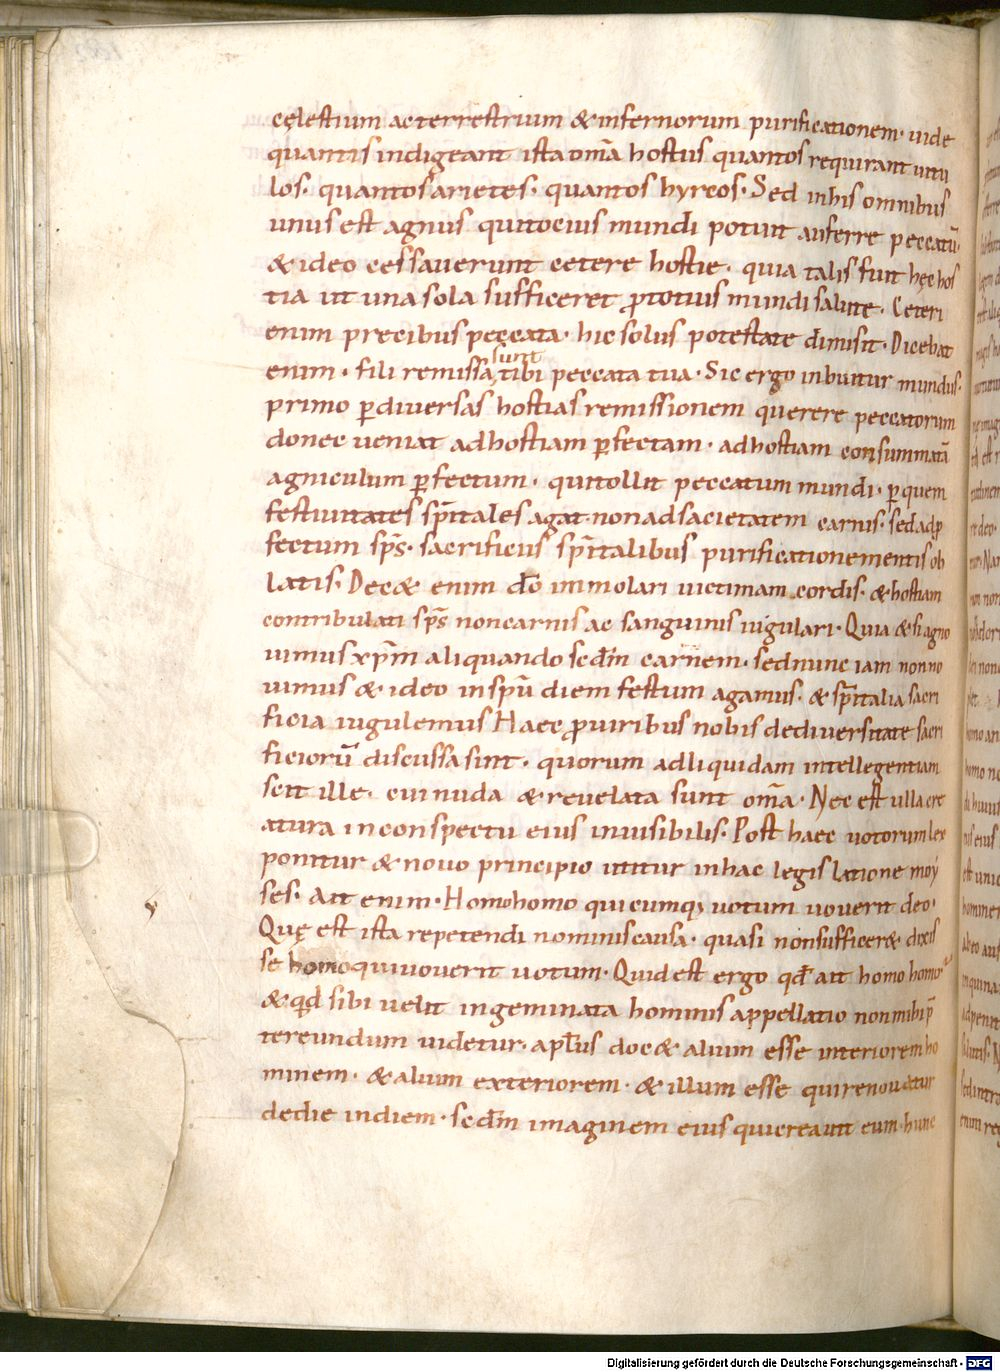 cęlestium ac terrestrium & infernorum purificationem· uide
quantis indigeant ista om̄a hostiis quantos requirant uitu
los· quantos arietes· quantos hyrcos· Sed in his omnibus
unus est agnus qui tocius mundi potuit auferre peccatū·
& ideo cessauerunt cetere hostie· quia talis fuit hęc hos
tia ut una sola sufficeret ꝓ totius mundi salute· Ceteri
enim precibus peccata· hic solus potestate dimisit· Dicebat
enim· fili remissa sunt tibi peccata tua· Sic ergo inbuitur mundus·
primo ꝑ diuersas hostias remissionem querere peccatorum
donec ueniat ad hostiam ꝑfectam· ad hostiam consummatā
agniculum ꝑfectum· qui tollit peccatum mundi· ꝑ quem
festiuitates sp̄itales agat· non ad sacietatem carnis· sed ad ꝓ
fectum sp̄s· sacrificiis sp̄italibus purificatione mentis ob
latis· Dec& enim do̅ immolari uictimam cordis· & hostiam
contribulati sp̄s non carnis ac sanguinis iugulari· Quia & si agno
uimus xp̄m aliquando scd̄m carnem· sed nunc iam non no
uimus & ideo in spū diem festum agamus· & sp̄italia sacri
ficia iugulemus Haec ꝓ uiribus nobis de diuersitate sacri
ficiorū discussa sint· quorum ad liquidam intellegentiam
scit ille· cui nuda & reuelata sunt om̄a· Nec est ulla cre
atura in conspectu eius inuisibilis· Post haec uotorum lex
ponitur & nouo principio utitur in hac legis latione moy
ses· Ait enim· Homo homo quicumq; uotum uouerit deo·
Quę est ista repetendi nominis causa· quasi non suffícer& dixis
se homo qui uouerit uotum· Quid est ergo qđ ait homo homo
& qđ sibi uelit ingeminata hominis appellatio non mihi p̄
tereundum uidetur· apl̄us doc& alium esse interiorem ho
minem· & alium exteriorem· & illum esse qui renouatur
de die in diem· scd̄m imaginem eius qui creauit eum· hunc
Digitalisierung gefördert durch die Deutsche Forschungsgemeinschaft · DFG